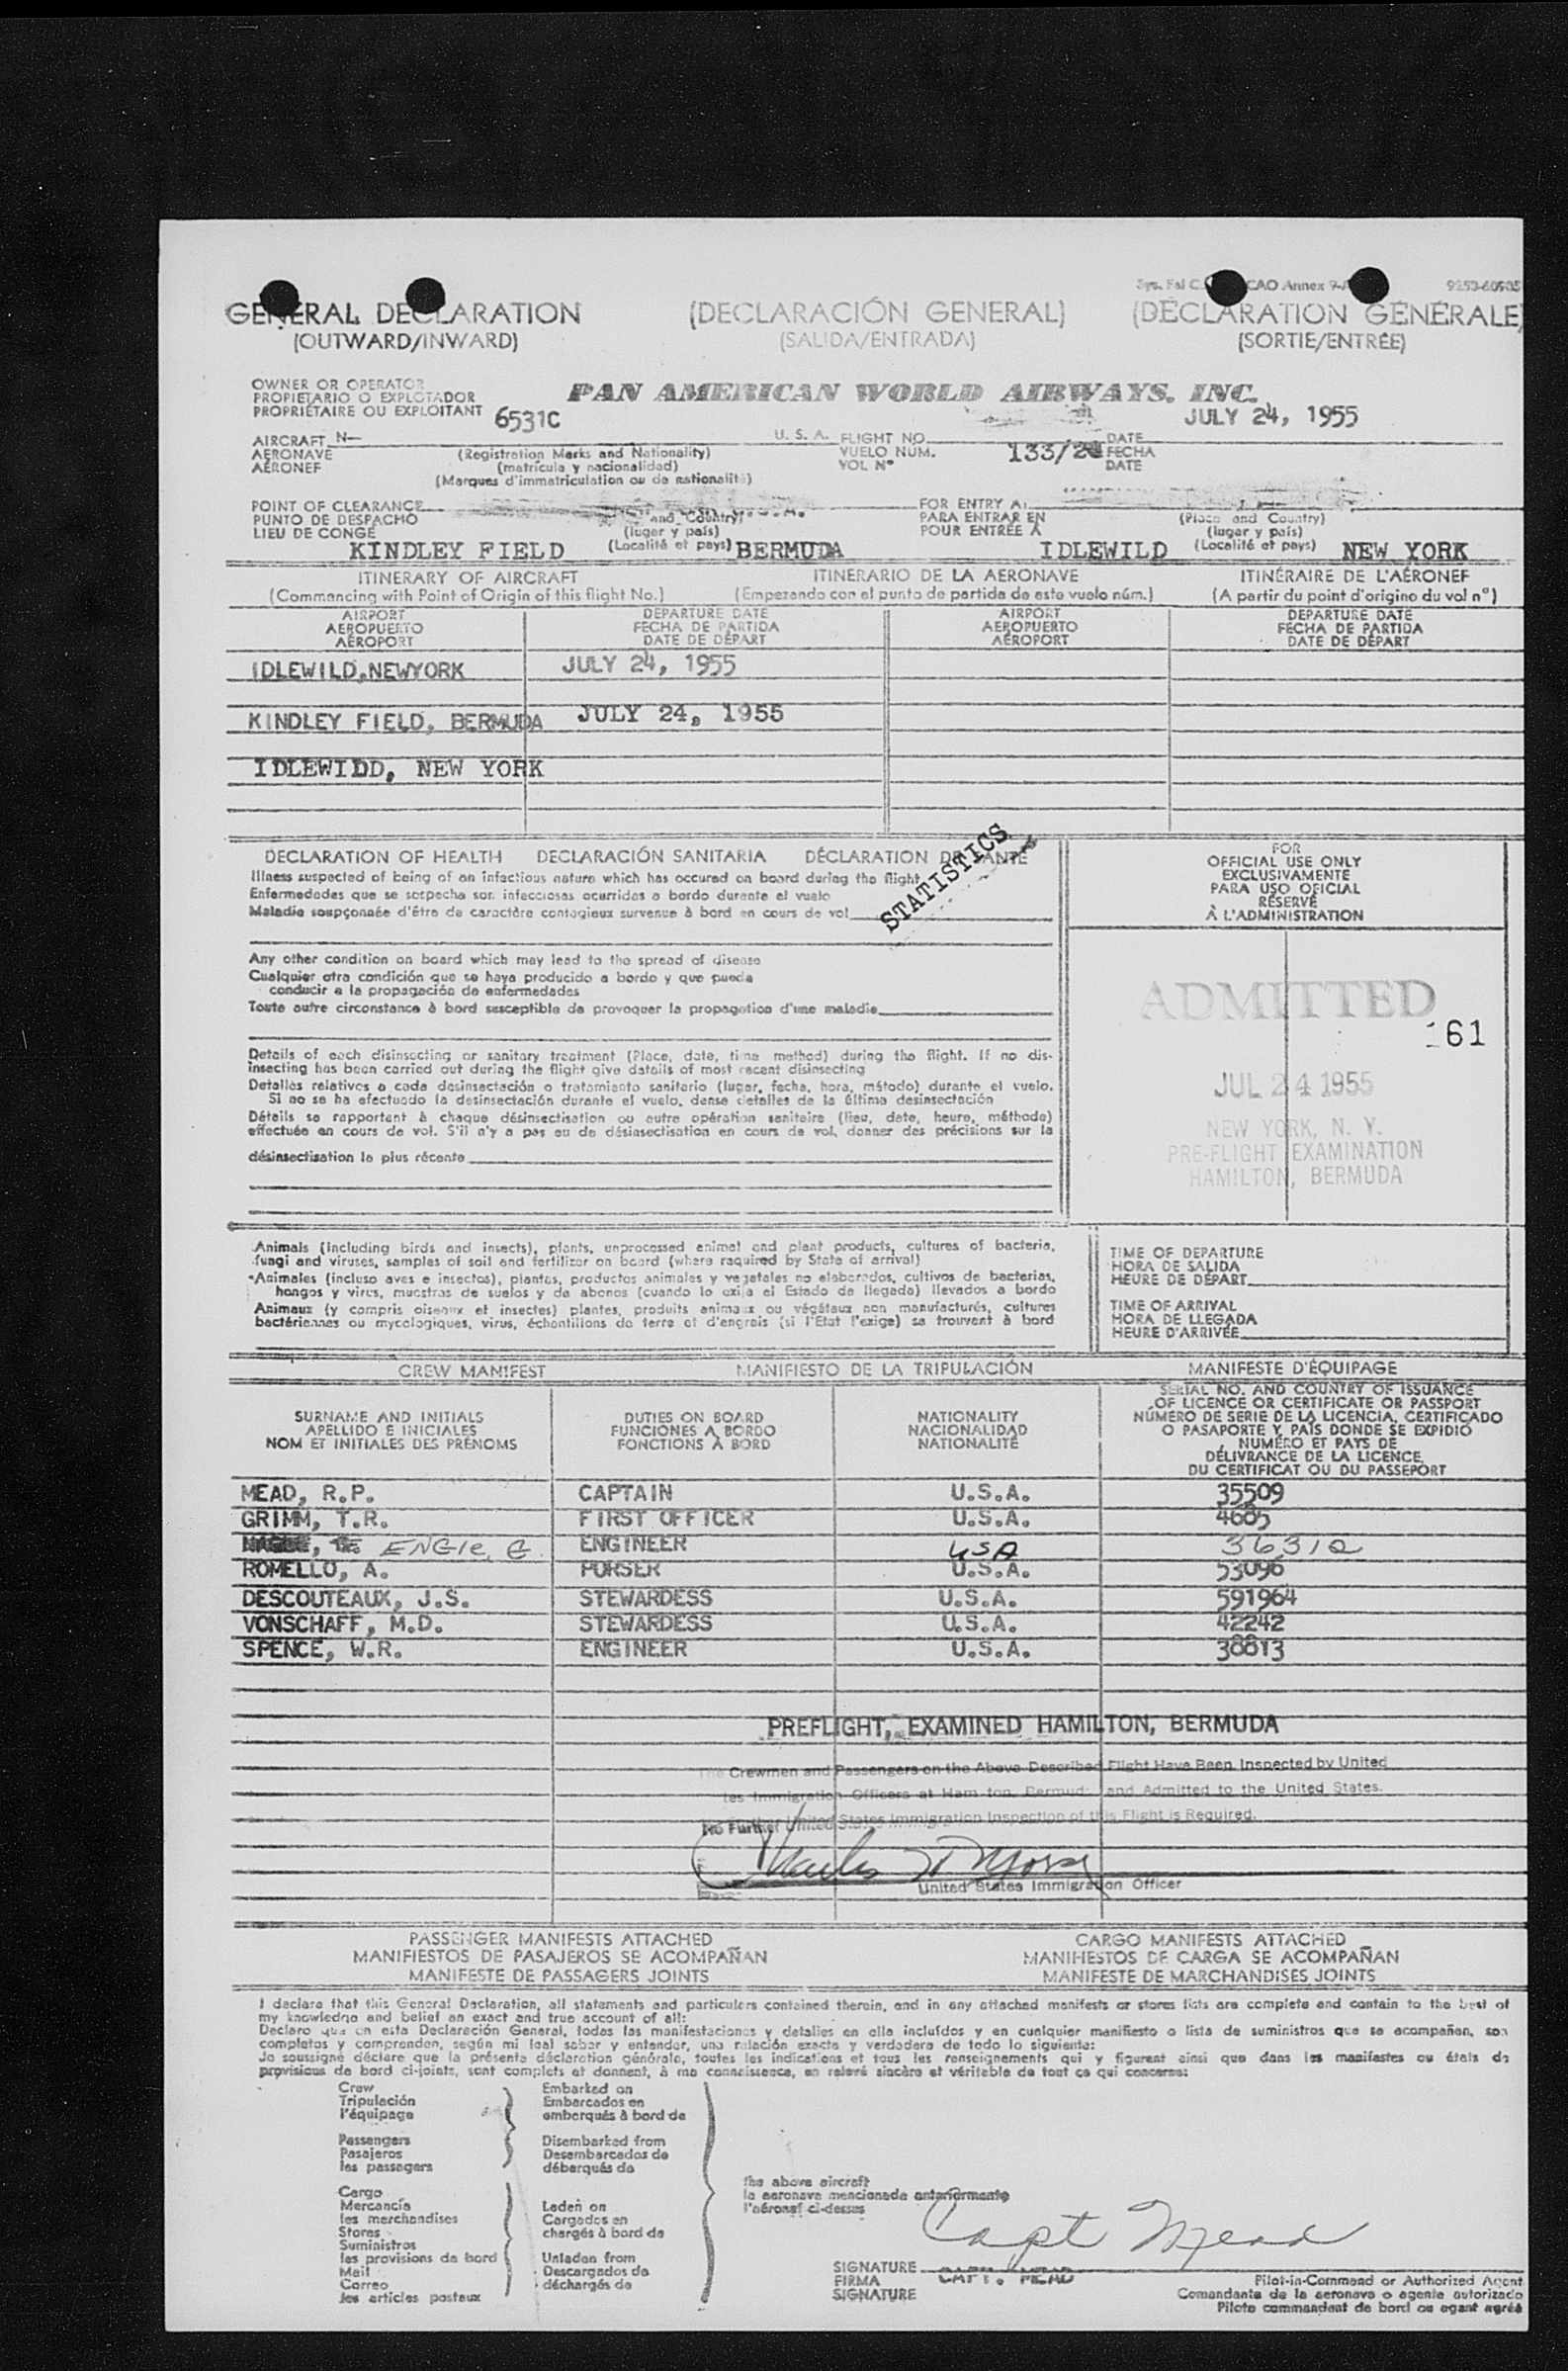 GENERAL DECLARATION (DECLARACIÓN GENERAL) (DÉCLARATION GÉNÉRALE)
(OUTWARD/INWARD) (SALIDA/ENTRADA) (SORTIE/ENTRÉE)
OWNER OR OPERATOR
PROPIETARIO O EXPLOTADOR
PROPRIÉTAIRE OU EXPLOITANT
PAN AMERICAN WORLD AIRWAYS, INC.
6531C JULY 24, 1955
AIRCRAFT N— U. S. A. FLIGHT NO. DATE
AERONAVE (Registration Marks and Nationality) VUELO NÚM. 133/24 FECHA
AÉRONEF (matrícula y nacionalidad) VOL Nº DATE
(Marques d'immatriculation ou de nationalité)
POINT OF CLEARANCE FOR ENTRY AT
PUNTO DE DESPACHO and Country) PARA ENTRAR EN (Place and Country)
LIEU DE CONGÉ (lugar y país) POUR ENTRÉE À (lugar y país)
KINDLEY FIELD (Localité et pays) BERMUDA IDLEWILD (Localité et pays) NEW YORK
ITINERARY OF AIRCRAFT ITINERARIO DE LA AERONAVE ITINÉRAIRE DE L'AÉRONEF
(Commencing with Point of Origin of this flight No.) (Empezando con el punto de partida de este vuelo núm.) (A partir du point d'origine du vol nº)
AIRPORT DEPARTURE DATE AIRPORT DEPARTURE DATE
AEROPUERTO FECHA DE PARTIDA AEROPUERTO FECHA DE PARTIDA
AÉROPORT DATE DE DÉPART AÉROPORT DATE DE DÉPART
IDLEWILD,NEWYORK JULY 24, 1955
KINDLEY FIELD, BERMUDA JULY 24, 1955
IDLEWIDD, NEW YORK
DECLARATION OF HEALTH DECLARACIÓN SANITARIA DÉCLARATION DE SANTÉ
STATISTICS
Illness suspected of being of an infectious nature which has occured on board during the flight
Enfermedades que se sospecha son infecciosas ocurridas a bordo durante el vuelo
Maladie soupçonnée d'être de caractère contagieux survenue à bord en cours de vol
Any other condition on board which may lead to the spread of disease
Cualquier otra condición que se haya producido a bordo y que pueda
conducir a la propagación de enfermedades
Toute autre circonstance à bord susceptible de provoquer la propagation d'une maladie
Details of each disinsecting or sanitary treatment (Place, date, time method) during the flight. If no dis-
insecting has been carried out during the flight give details of most recent disinsecting
Detalles relativos a cada desinsectación o tratamiento sanitario (lugar, fecha, hora, método) durante el vuelo.
Si no se ha efectuado la desinsectación durante el vuelo, dense detalles de la última desinsectación
Détails se rapportant à chaque désinsectisation ou autre opération sanitaire (lieu, date, heure, méthode)
effectuée en cours de vol. S'il n'y a pas eu de désinsectisation en cours de vol, donner des précisions sur la
désinsectisation la plus récente
FOR
OFFICIAL USE ONLY
EXCLUSIVAMENTE
PARA USO OFICIAL
RÉSERVÉ
À L'ADMINISTRATION
ADMITTED
161
JUL 24 1955
NEW YORK, N. Y.
PRE-FLIGHT EXAMINATION
HAMILTON, BERMUDA
Animals (including birds and insects), plants, unprocessed animal and plant products, cultures of bacteria,
fungi and viruses, samples of soil and fertilizer on board (where required by State of arrival)
Animales (incluso aves e insectos), plantas, productos animales y vegetales no elaborados, cultivos de bacterias,
hongos y virus, muestras de suelos y de abonos (cuando lo exija el Estado de llegada) llevados a bordo
Animaux (y compris oiseaux et insectes) plantes, produits animaux ou végétaux non manufacturés, cultures
bactériennes ou mycologiques, virus, échantillons de terre et d'engrais (si l'Etat l'exige) se trouvant à bord
TIME OF DEPARTURE
HORA DE SALIDA
HEURE DE DÉPART
TIME OF ARRIVAL
HORA DE LLEGADA
HEURE D'ARRIVÉE
CREW MANIFEST MANIFIESTO DE LA TRIPULACIÓN MANIFESTE D'ÉQUIPAGE
SURNAME AND INITIALS
APELLIDO E INICIALES
NOM ET INITIALES DES PRÉNOMS
DUTIES ON BOARD
FUNCIONES A BORDO
FONCTIONS À BORD
NATIONALITY
NACIONALIDAD
NATIONALITÉ
SERIAL NO. AND COUNTRY OF ISSUANCE
OF LICENCE OR CERTIFICATE OR PASSPORT
NÚMERO DE SERIE DE LA LICENCIA, CERTIFICADO
O PASAPORTE Y PAÍS DONDE SE EXPIDIÓ
NUMÉRO ET PAYS DE
DÉLIVRANCE DE LA LICENCE,
DU CERTIFICAT OU DU PASSEPORT
MEAD, R.P. CAPTAIN U.S.A. 35509
GRIMM, T.R. FIRST OFFICER U.S.A. 4605
ENGle, E. ENGINEER USA 36312
ROMELLO, A. PURSER U.S.A. 53096
DESCOUTEAUX, J.S. STEWARDESS U.S.A. 591964
VONSCHAFF, M.D. STEWARDESS U.S.A. 42242
SPENCE, W.R. ENGINEER U.S.A. 38813
PREFLIGHT, EXAMINED HAMILTON, BERMUDA
The Crewmen and Passengers on the Above Described Flight Have Been Inspected by United
tes Immigration Officers at Ham ton, Bermud and Admitted to the United States.
No Further United States Immigration Inspection of this Flight is Required.
United States Immigration Officer
PASSENGER MANIFESTS ATTACHED CARGO MANIFESTS ATTACHED
MANIFIESTOS DE PASAJEROS SE ACOMPAÑAN MANIFIESTOS DE CARGA SE ACOMPAÑAN
MANIFESTE DE PASSAGERS JOINTS MANIFESTE DE MARCHANDISES JOINTS
I declare that this General Declaration, all statements and particulars contained therein, and in any attached manifests or stores lists are complete and contain to the best of
my knowledge and belief an exact and true account of all:
Declaro que en esta Declaración General, todas las manifestaciones y detalles en ella incluídos y en cualquier manifiesto o lista de suministros que se acompañan, son
completos y comprenden, según mi leal saber y entender, una relación exacta y verdadera de todo lo siguiente:
Je soussigné déclare que la présente déclaration générale, toutes les indications et tous les renseignements qui y figurent ainsi que dans les manifestes ou états de
provisions de bord ci-joints, sont complets et donnent, à ma connaissance, un relevé sincère et véritable de tout ce qui concerne:
Crew
Tripulación
l'équipage
Passengers
Pasajeros
les passagers
Cargo
Mercancía
les merchandises
Stores
Suministros
les provisions de bord
Mail
Correo
les articles postaux
Embarked on
Embarcados en
embarqués à bord de
Disembarked from
Desembarcados de
débarqués de
Laden on
Cargados en
chargés à bord de
Unladen from
Descargados de
déchargés de
the above aircraft
la aeronave mencionada anteriormente
l'aéronef ci-dessus
Capt Mead
SIGNATURE CAPT. MEAD
FIRMA
SIGNATURE
Pilot-in-Command or Authorized Agent
Comandante de la aeronave o agente autorizado
Pilote commandant de bord ou agent agréé